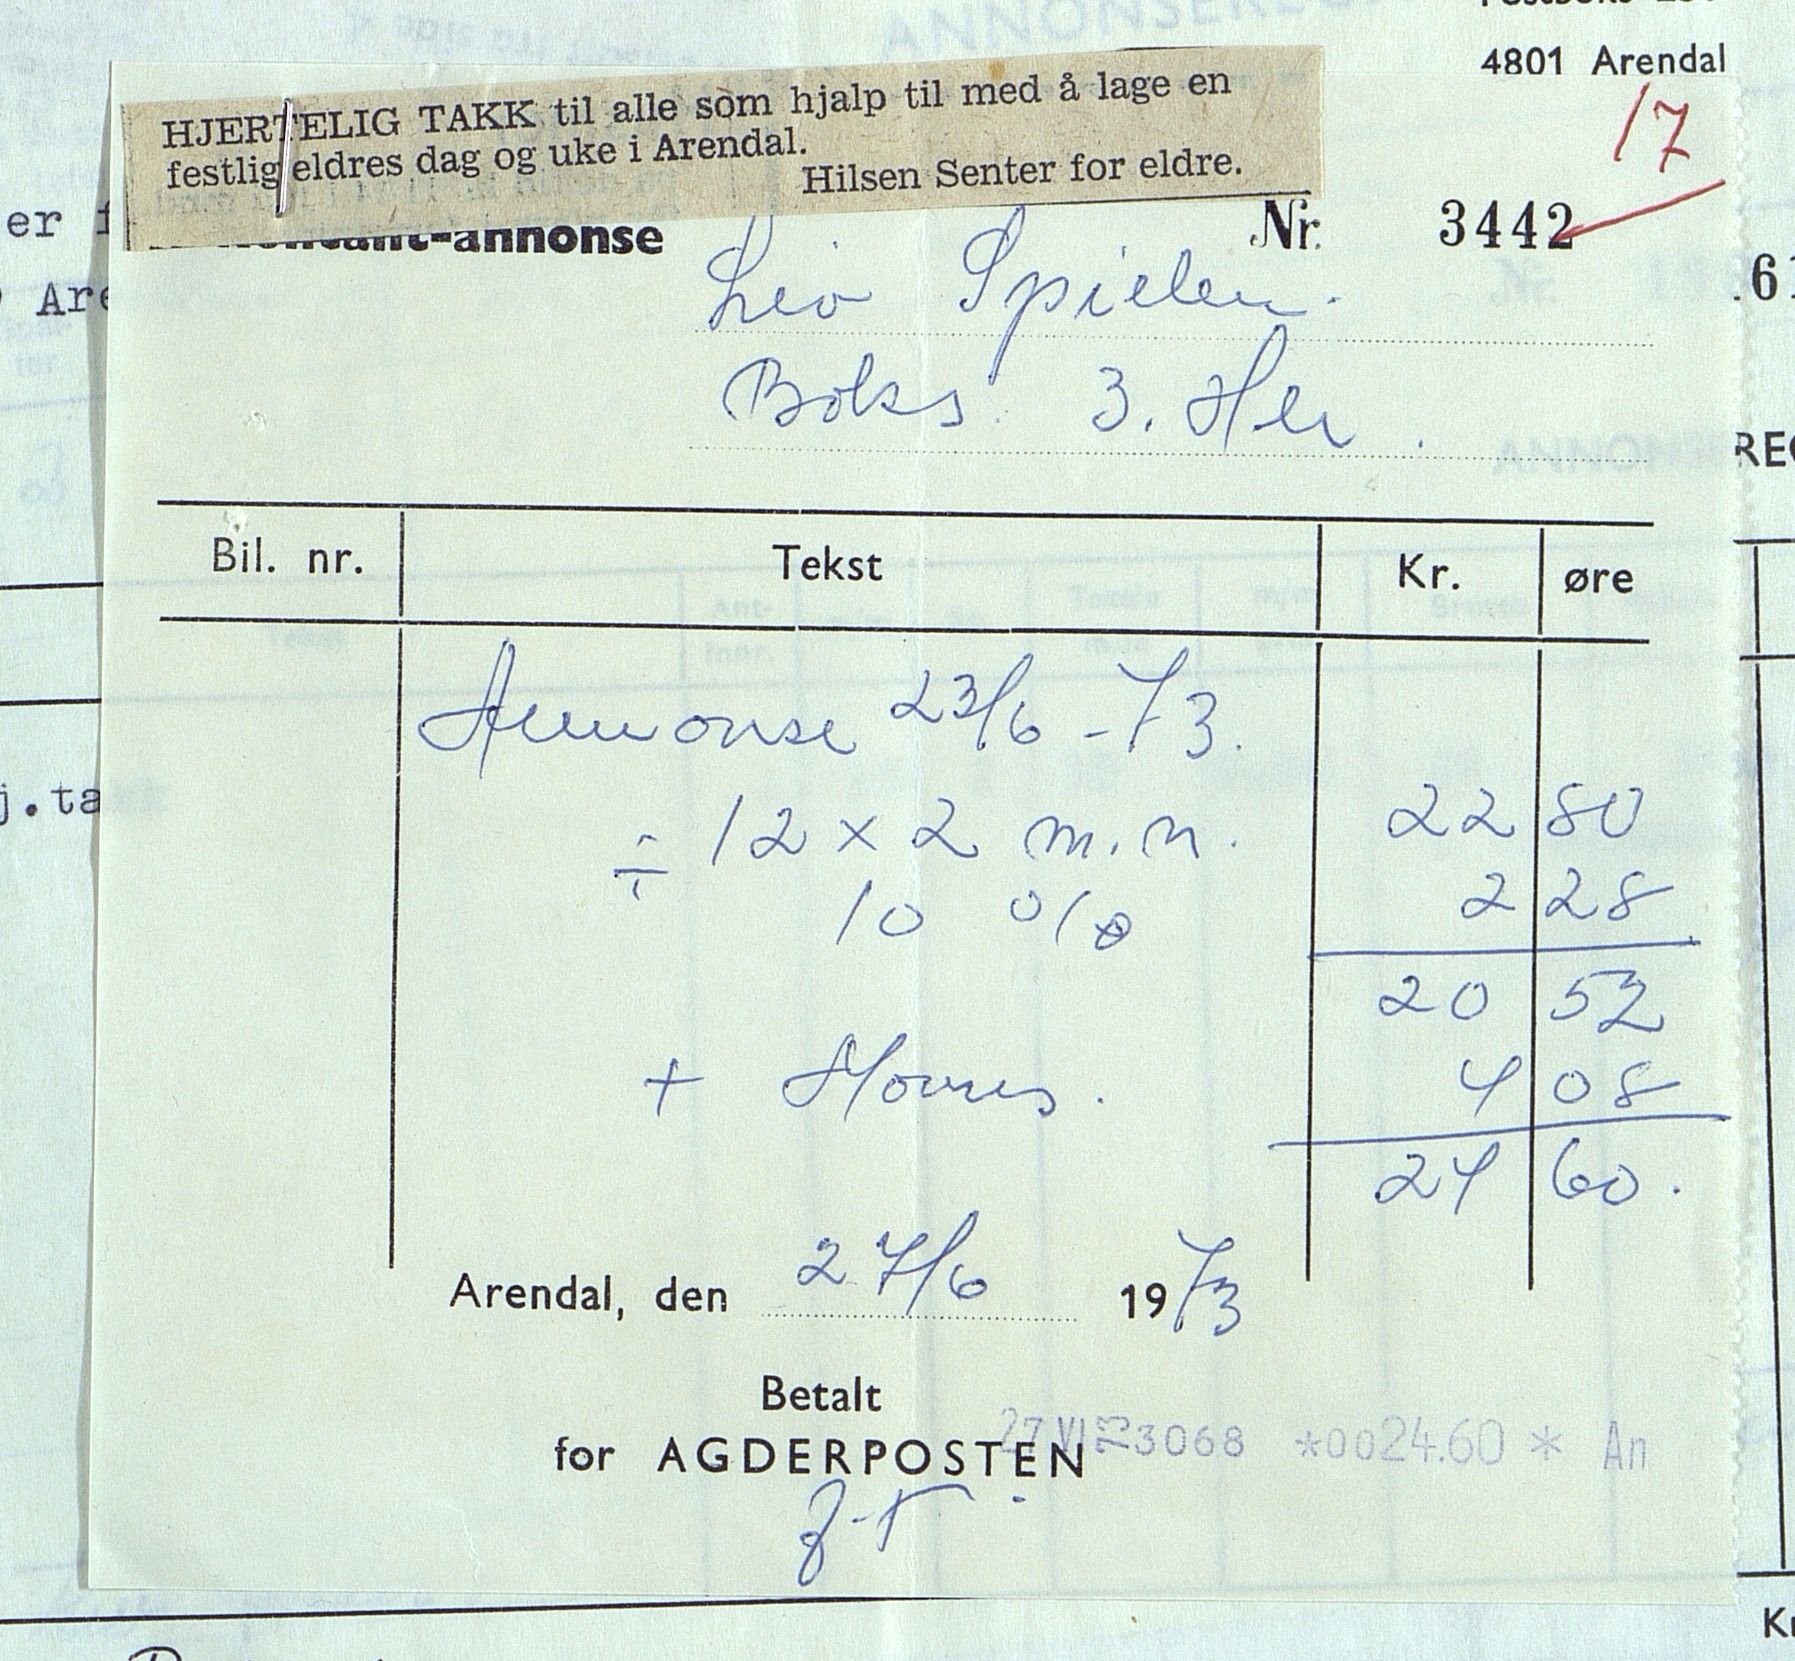 4801 Arendal
HJERTELIG TAKK til alle som hjalp til med å lage en
festlig eldres dag og uke i Arendal.
Hilsen Senter for eldre.
17
er f
-annonse Nr. 3442
Are
61
Boks 3. His.
REG
Bil. nr. Tekst Kr. øre
Annonse 23/6 - 73.
j.takk
12 x 2 m.m. 22 80
÷ 10 % 2 28
20 52
+ Moms. 4 08
24 60.
Arendal, den 27/6 1973
Betalt
27 VI 73 3068 *0024.60 * An
for AGDERPOSTEN
Kr